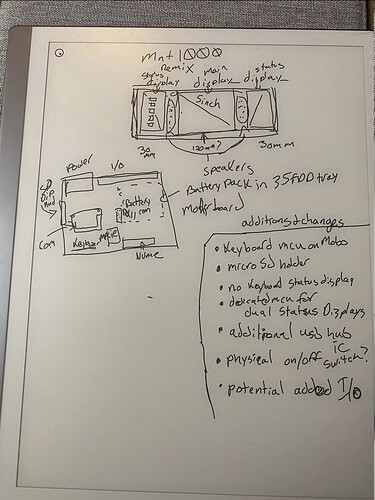 mnt 1000
Remix
status display
main display
status display
5inch
30 mm
120mm?
30mm
speakers
Power
I/O
Battery pack in 3.5 FDD tray
motherboard
Battery
con
Com
Keyboard
Nvme
additions & changes
• Keyboard mcu on Mobo
• micro Sd holder
• no Keyboard status display
• dedicated mcu for
dual status Displays
• additional usb hub
IC
• physical on/off switch?
• potential added I/o